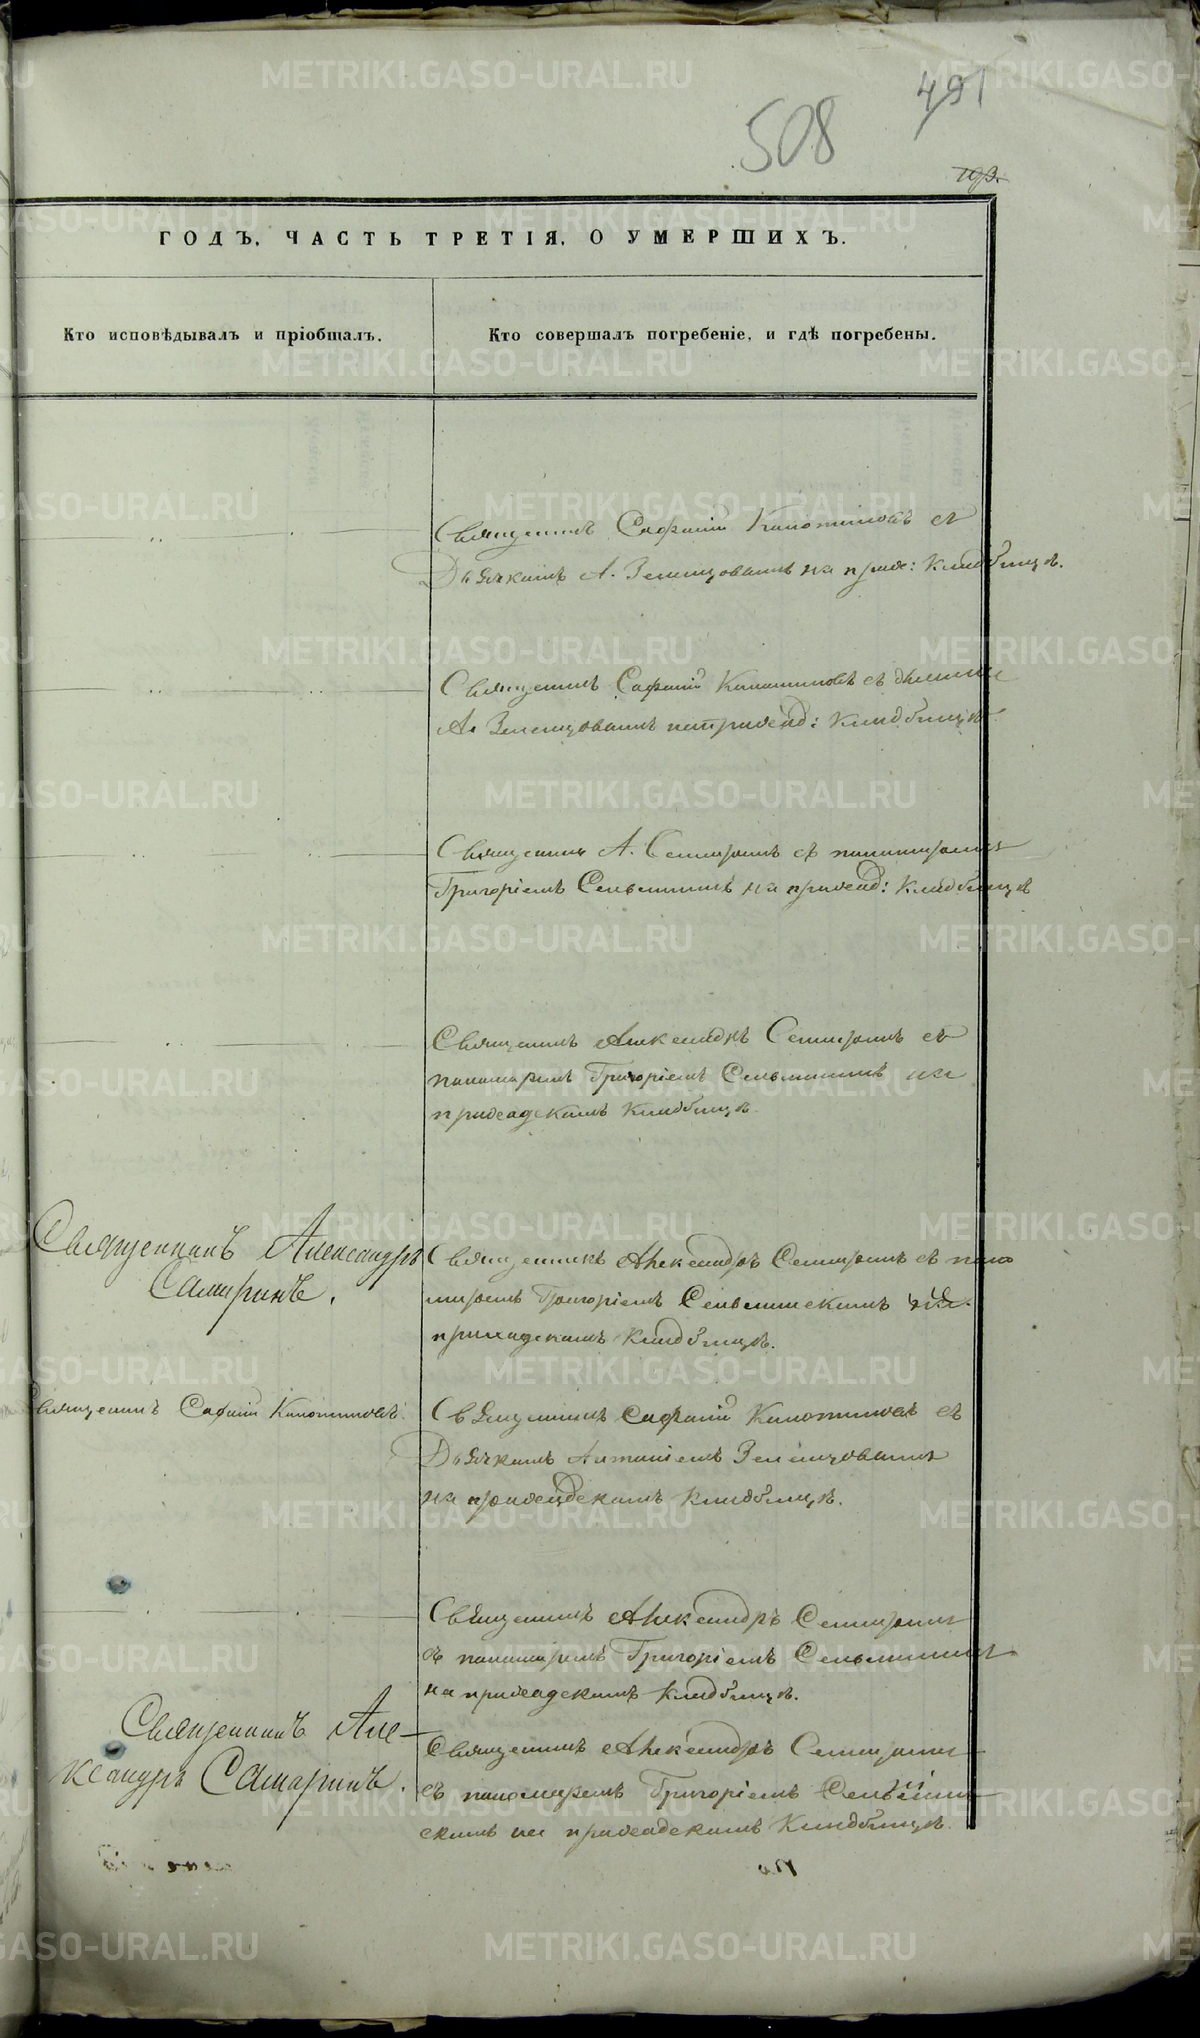 491
508
193.
ГОДЪ, ЧАСТЬ ТРЕТІЯ, О УМЕРШИХЪ.
Кто исповѣдывалъ и пріобщалъ.
Кто совершалъ погребеніе, и гдѣ погребены.
Священникъ Сафоній съ
Дьячкомъ А. Зеленцовымъ на прих: Кладбищѣ.
Священникъ Сафоній съ
А. Зеленцовымъ на приход: Кладбищѣ.
Священникъ А. Самаринъ съ пономаремъ
Григоріемъ на приход: Кладбищѣ
Священникъ Александръ Самаринъ съ
пономаремъ Григоріемъ на
приходскомъ Кладбищѣ.
Священникъ Александръ
Самаринъ.
Священникъ Александръ Самаринъ съ поно
маремъ Григоріемъ на
приходскомъ Кладбищѣ.
Священникъ Сафоній
Священникъ Сафоній съ
Дьячкомъ Антоніемъ Зеленцовымъ
на приходскомъ Кладбищѣ.
Священникъ Александръ Самаринъ
съ пономаремъ Григоріемъ
на приходскомъ Кладбищѣ.
Священникъ Але-
ксандръ Самаринъ.
Священникъ Александръ Самаринъ
съ пономаремъ Григоріемъ
скимъ на приходскомъ Кладбищѣ.
METRIKI.GASO-URAL.RU